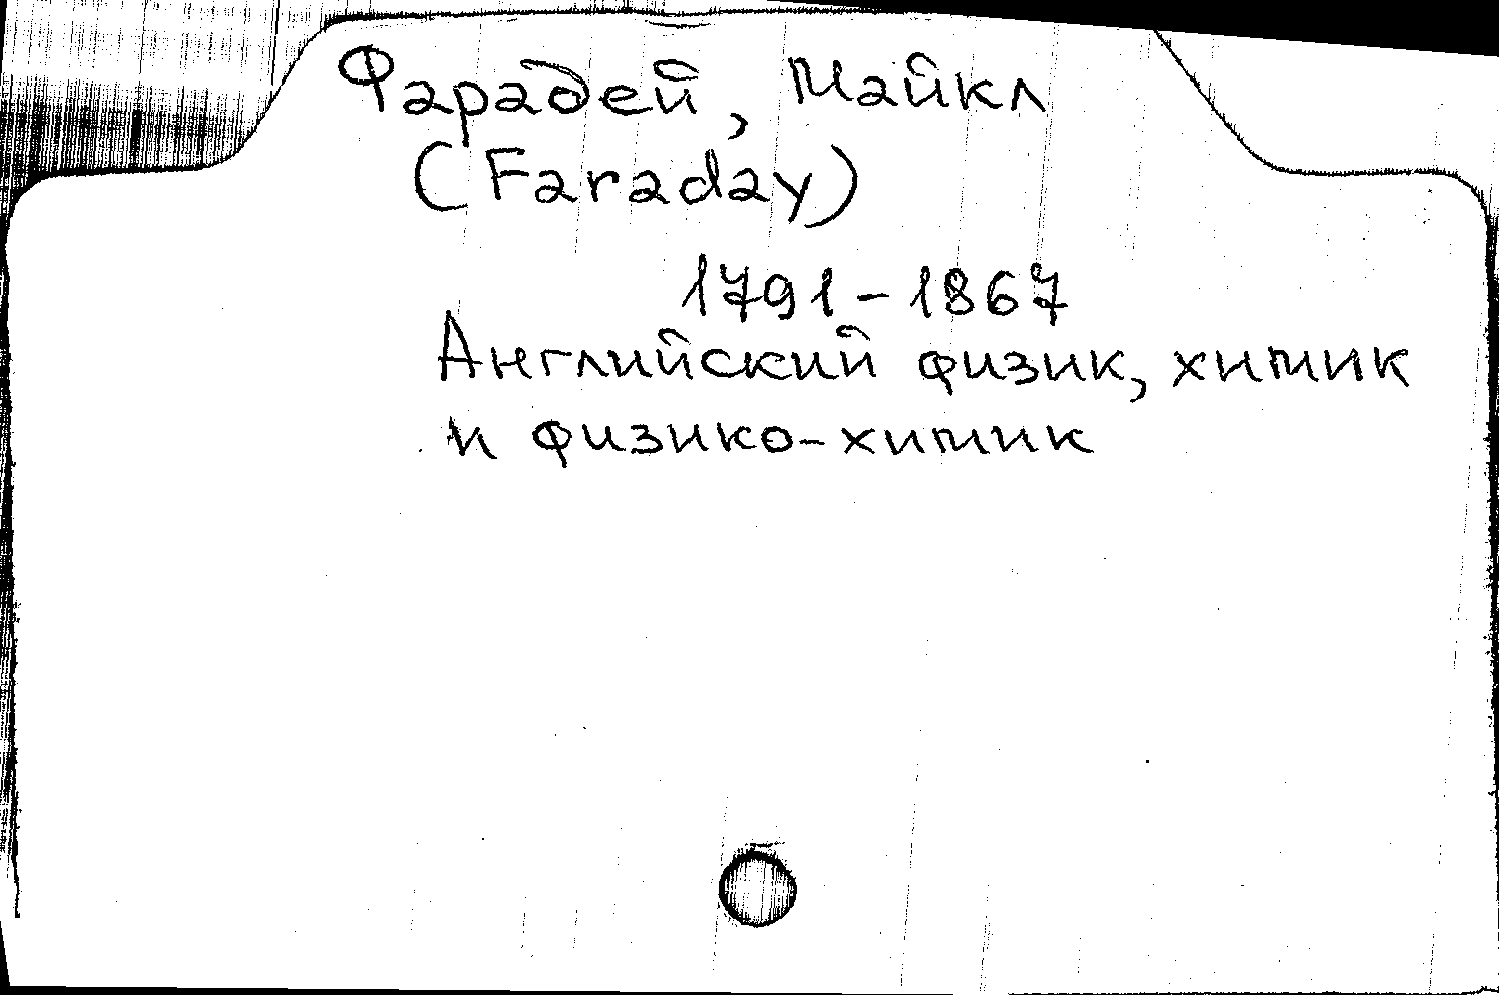 Фарадей, Майкл
(Faraday)
1791-1867
Английский физик, химик
и физико-химик